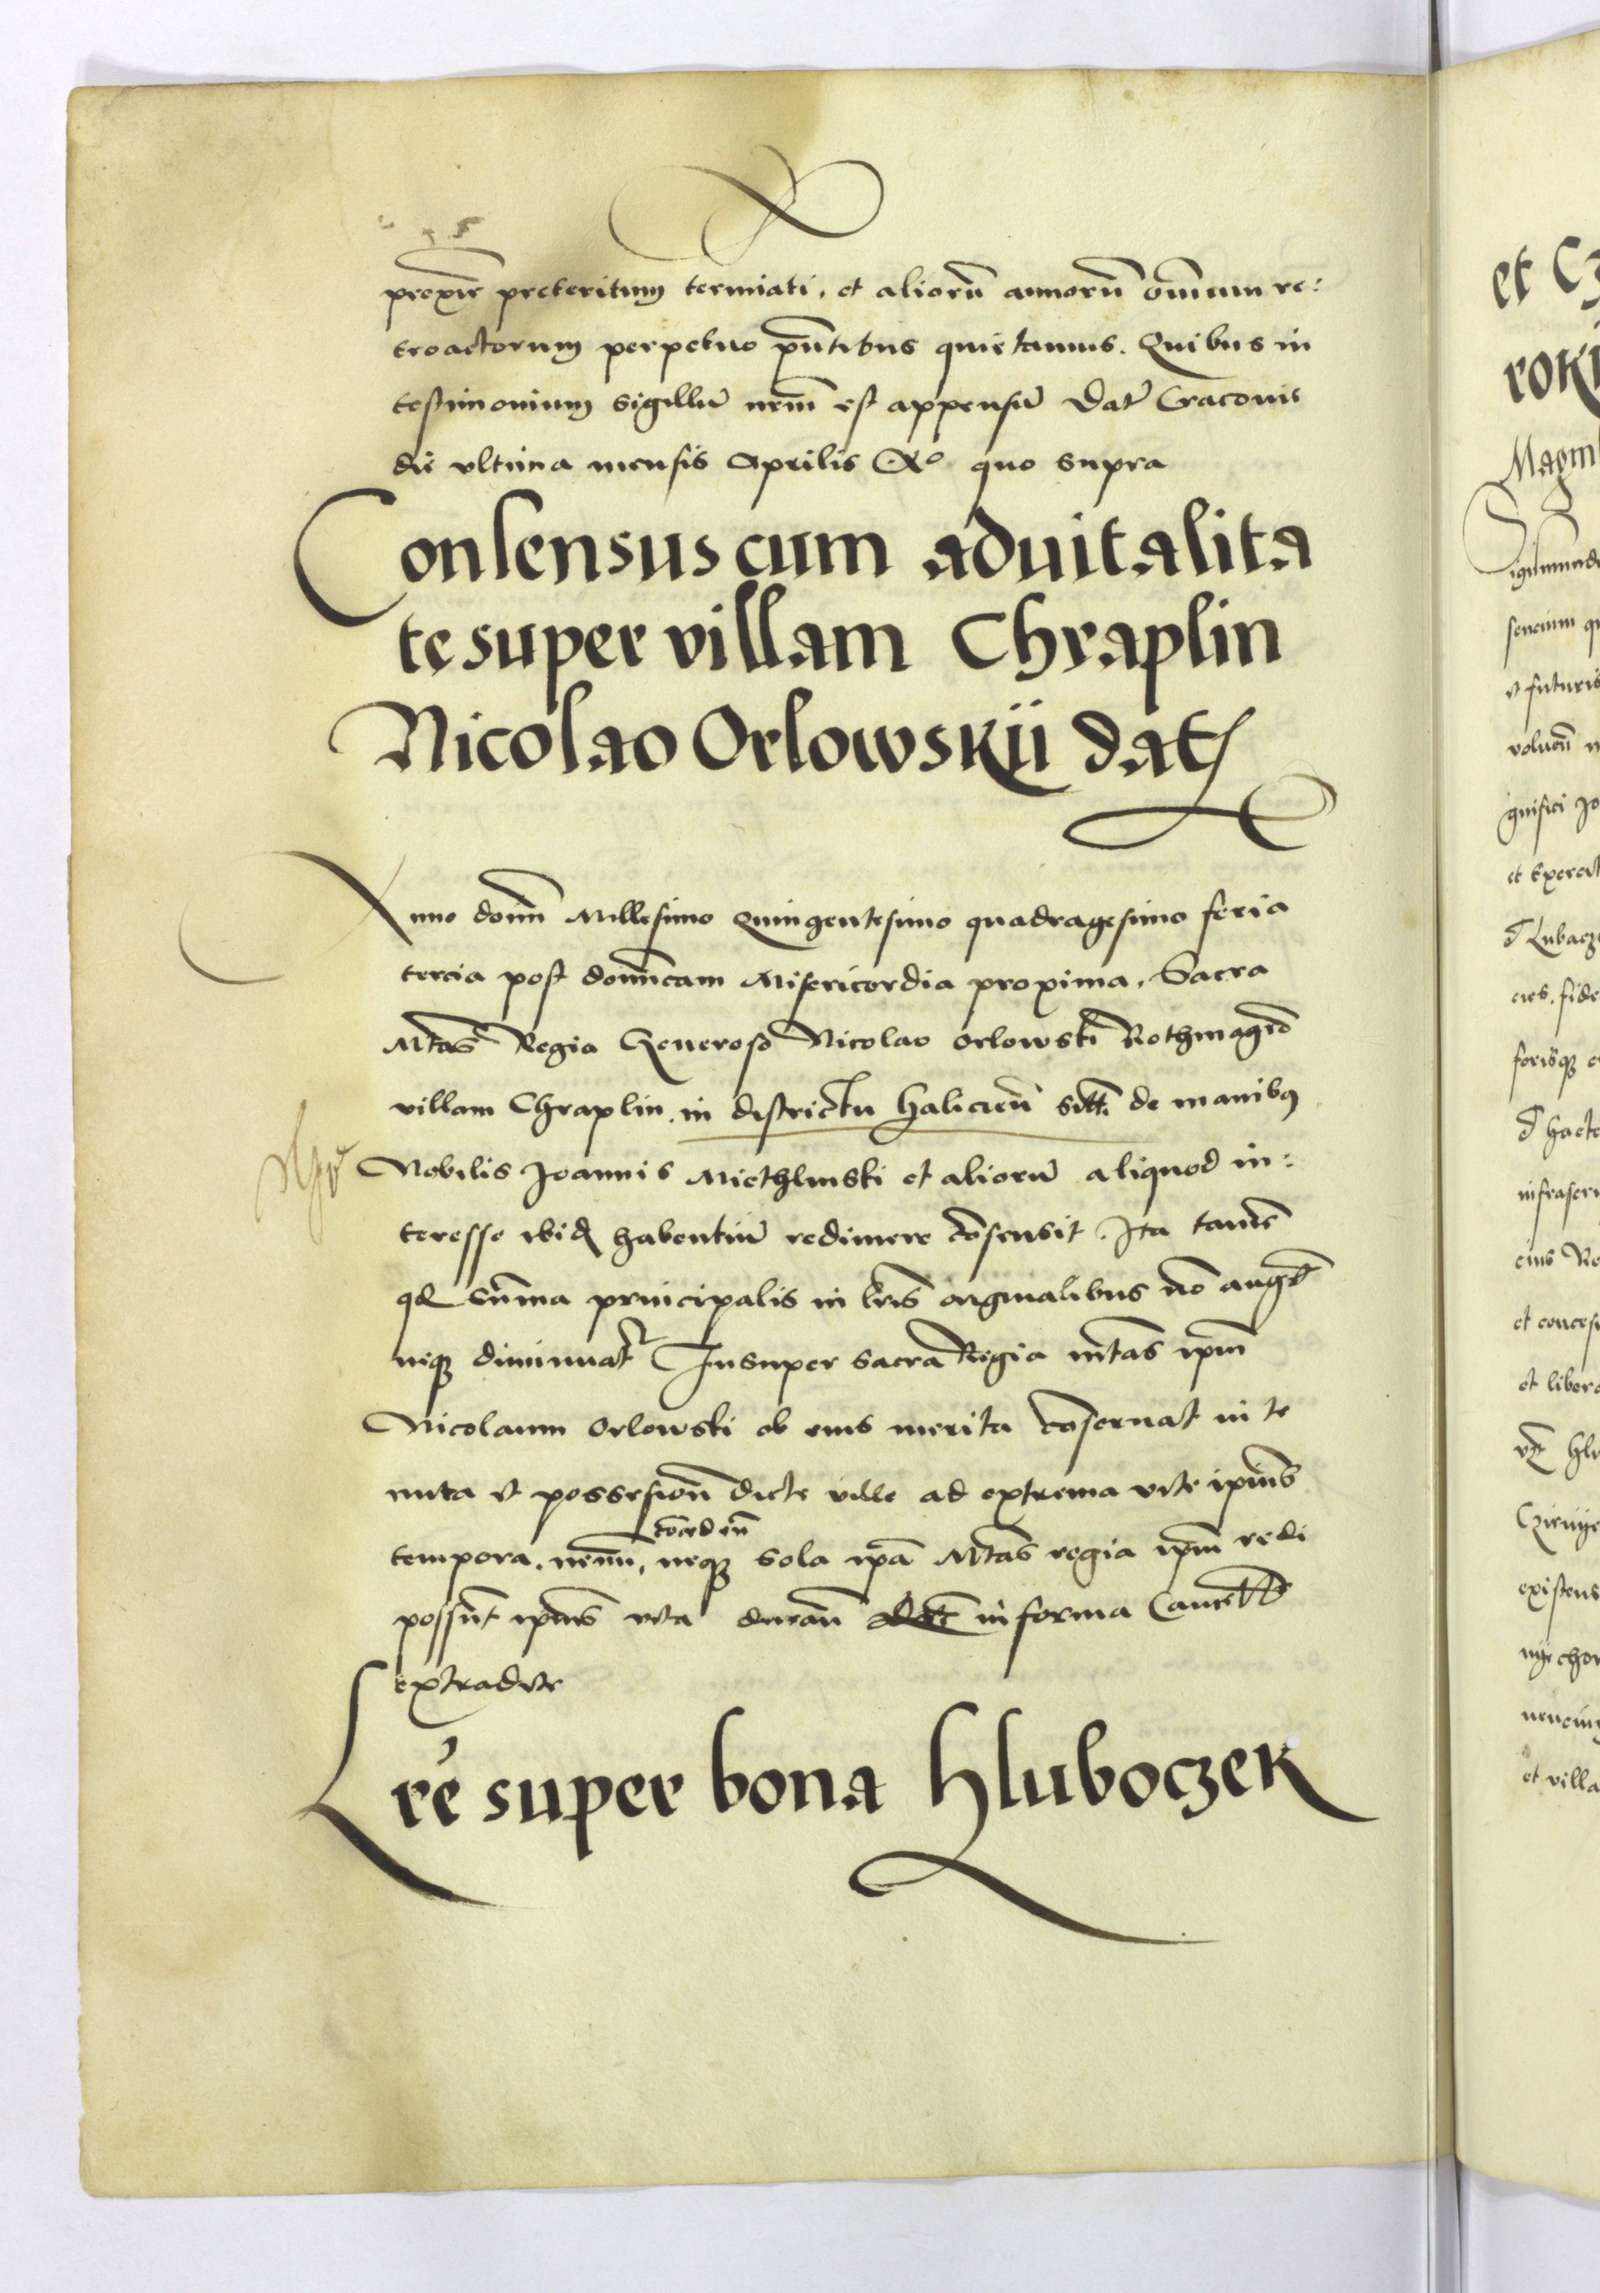 proxīe preteritum termīati, et aliorū annorū om̄nium re:
troactorum perpetuo p̄ntibus quietamus. Quibus in
testimonium sigillū nrm̄ est appensū Dat̄ Cracouie
die vltima mensis Aprilis Aº quo supra
Consensus cum aduitalita
te super villam Chraplin
Nicolao Orlowskii dat
Anno domī Millesimo Quingentesimo quadragesimo feria
tercia post domīcam Misericordia proxima, Sacra
Mtas Regia Generoso Nicolao Orlowski Rothmagrō
villam Chraplin in districtu halicien̄ sitt de manibus
Nobilis Joannis Miethlinski et aliorū aliquod in:
teresse ibid habentiū redimere cōsensit. Ita tamē
qd sum̄ma principalis in lr̄is originalibus nō auget̄
neque diminuat̄ Insuper sacra Regia mtas ipm̄
Nicolaum Orlowski ob eius merita cōseruat in te
nuta et possesion̄ dicte ville ad extrema vite ipius
tempora, nem̄, concedēn neque sola ipa Mtas regia ipm̄ redi
possunt ipius vita duran̄ in forma Cancell
extradite
Lre super bona Hluboczek
et Cz
roki
Magni
Sigismund
sencium qu
et futuris
gnifici Jo
et Exercit
d Lubacz
cies. fide
d hacte
infrascri
eius Re
et concess
et libera
existens
et villa